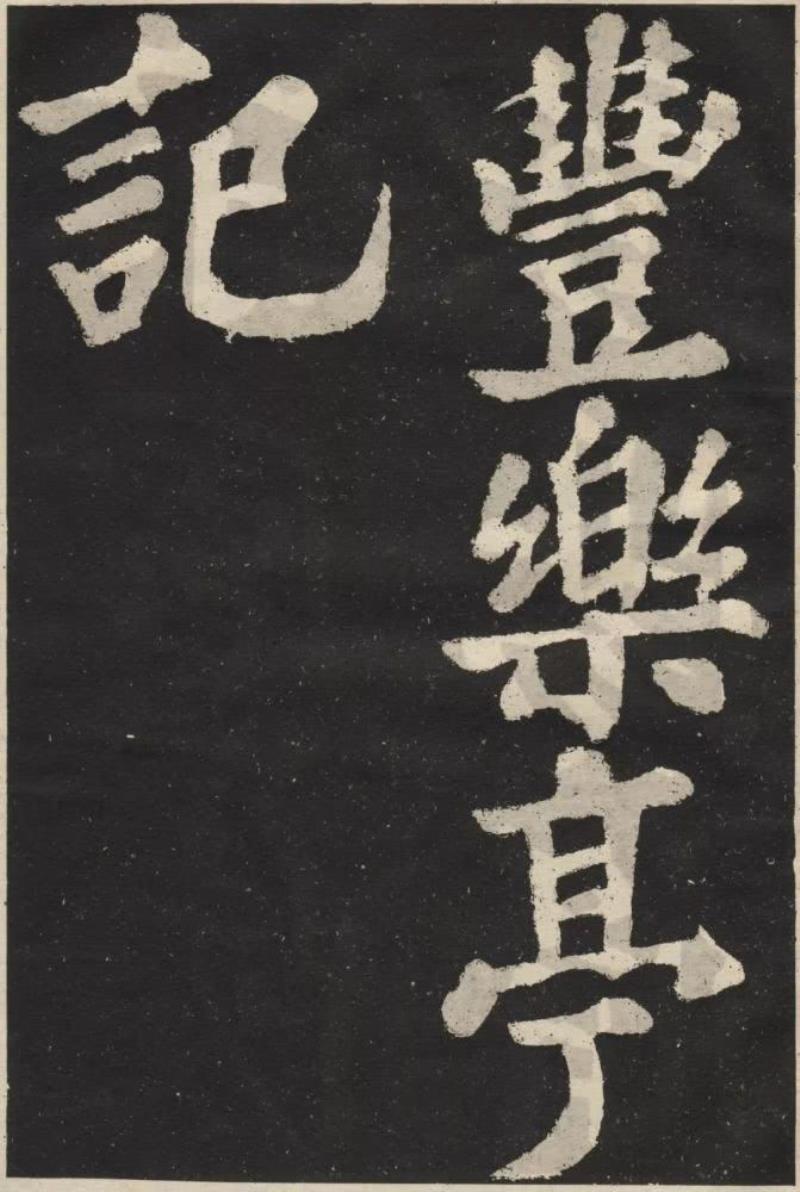 豐樂亭
記